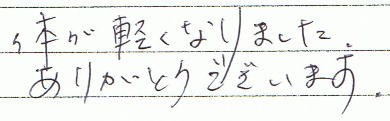 体が軽くなりました.
ありがとうございます.